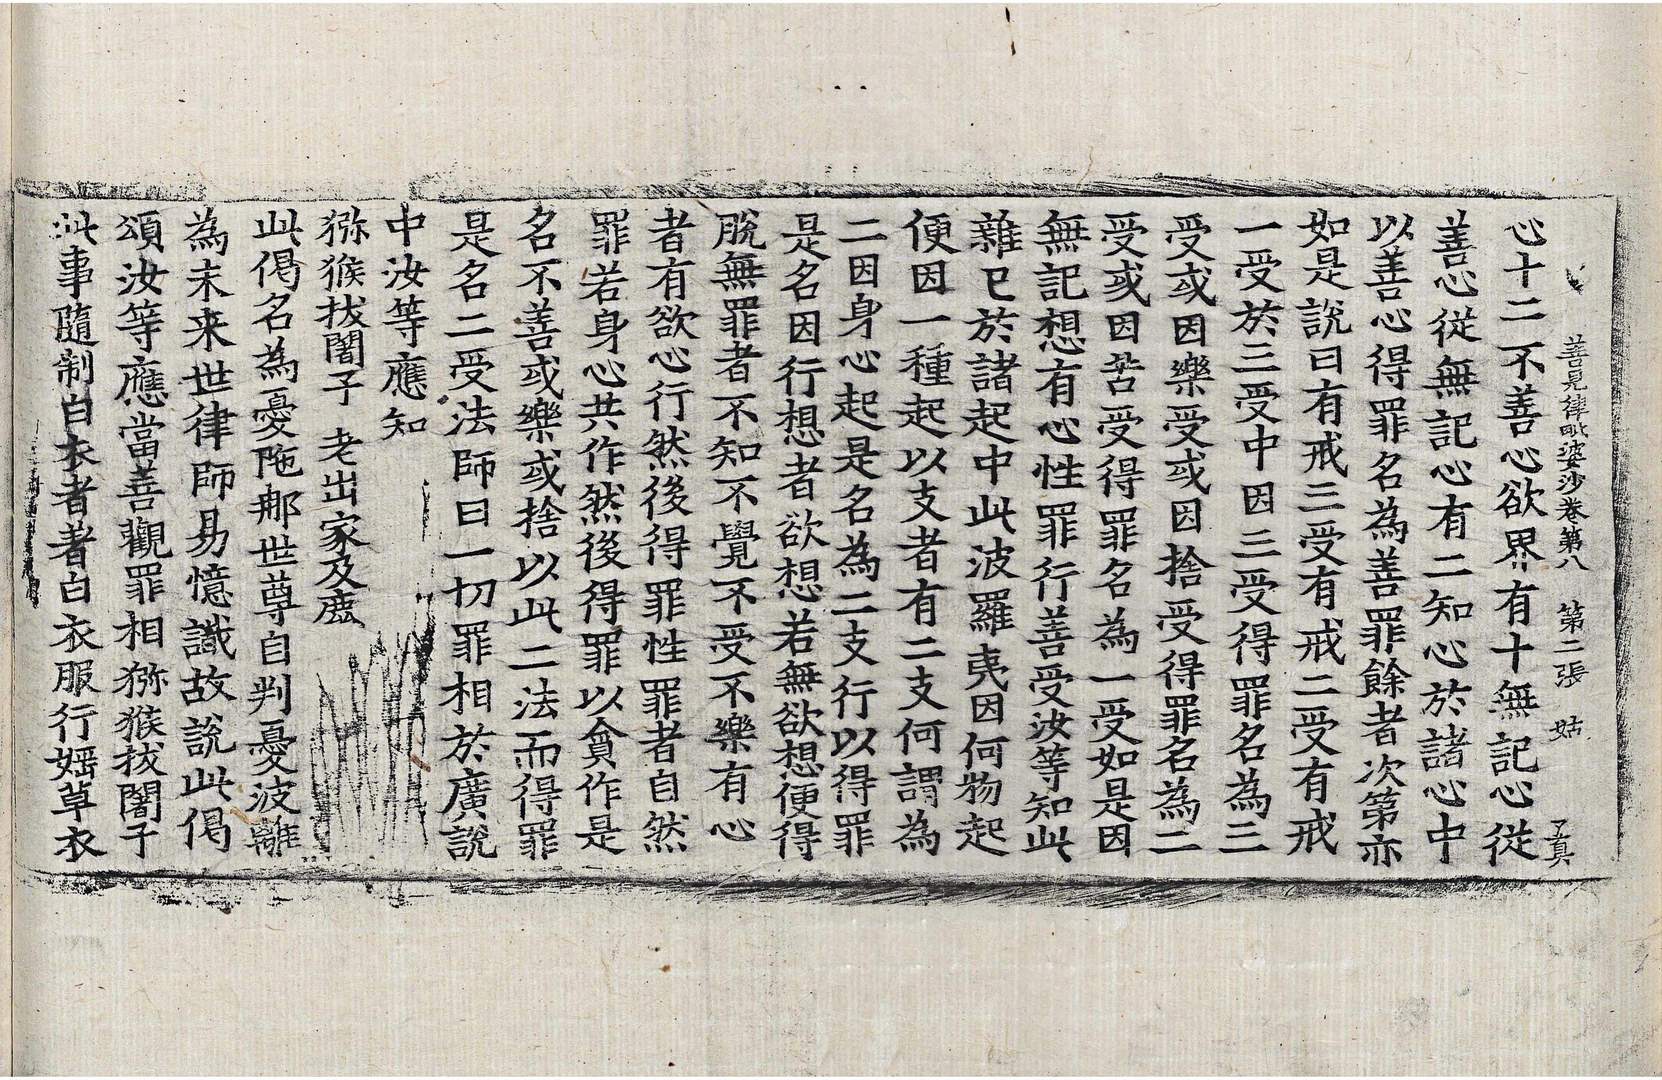 善見律毗婆沙卷第八　第二張　姑　了真
心十二不善心欲界有十無記心從
善心從無記心有二知心於諸心中
以善心得罪名為善罪餘者次第亦
如是說曰有戒三受有戒二受有戒
一受於三受中因三受得罪名為三
受或因樂受或因捨受得罪名為二
受或因苦受得罪名為一受如是因
無記想有心性罪行善受汝等知此
雜已於諸起中此波羅夷因何物起
便因一種起以支者有二支何謂為
二因身心起是名為二支行以得罪
是名因行想者欲想若無欲想便得
脫無罪者不知不覺不受不樂有心
者有欲心行然後得罪性罪者自然
罪若身心共作然後得罪以貪作是
名不善或樂或捨以此二法而得罪
是名二受法師曰一切罪相於廣說
中汝等應知
猕猴拔闍子　老出家及鹿
此偈名為憂陁那世尊自判憂波離
為未来世律師易憶識故說此偈
頌汝等應當善觀罪相猕猴拔闍子
此事隨制白衣者著白衣服行婬草衣